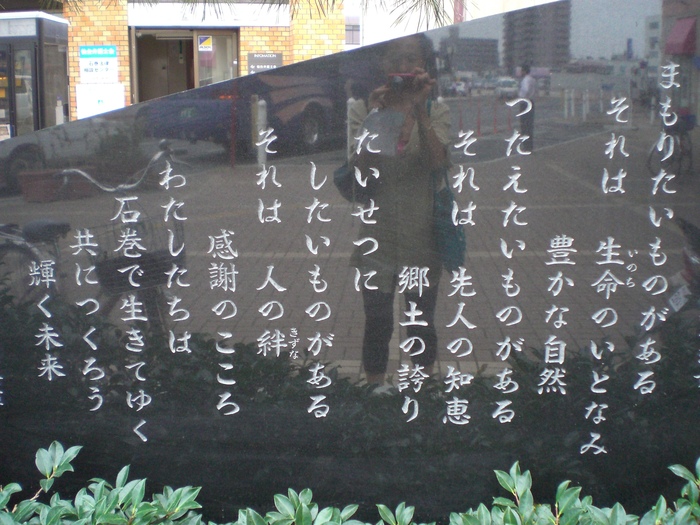 まもりたいものがある
それは 生命のいとなみ
いのち
豊かな自然
つたえたいものがある
それは 先人の知恵
郷土の誇り
たいせつに
したいものがある
それは 人の絆
きずな
感謝のこころ
わたしたちは
石巻で生きてゆく
共につくろう
輝く未来